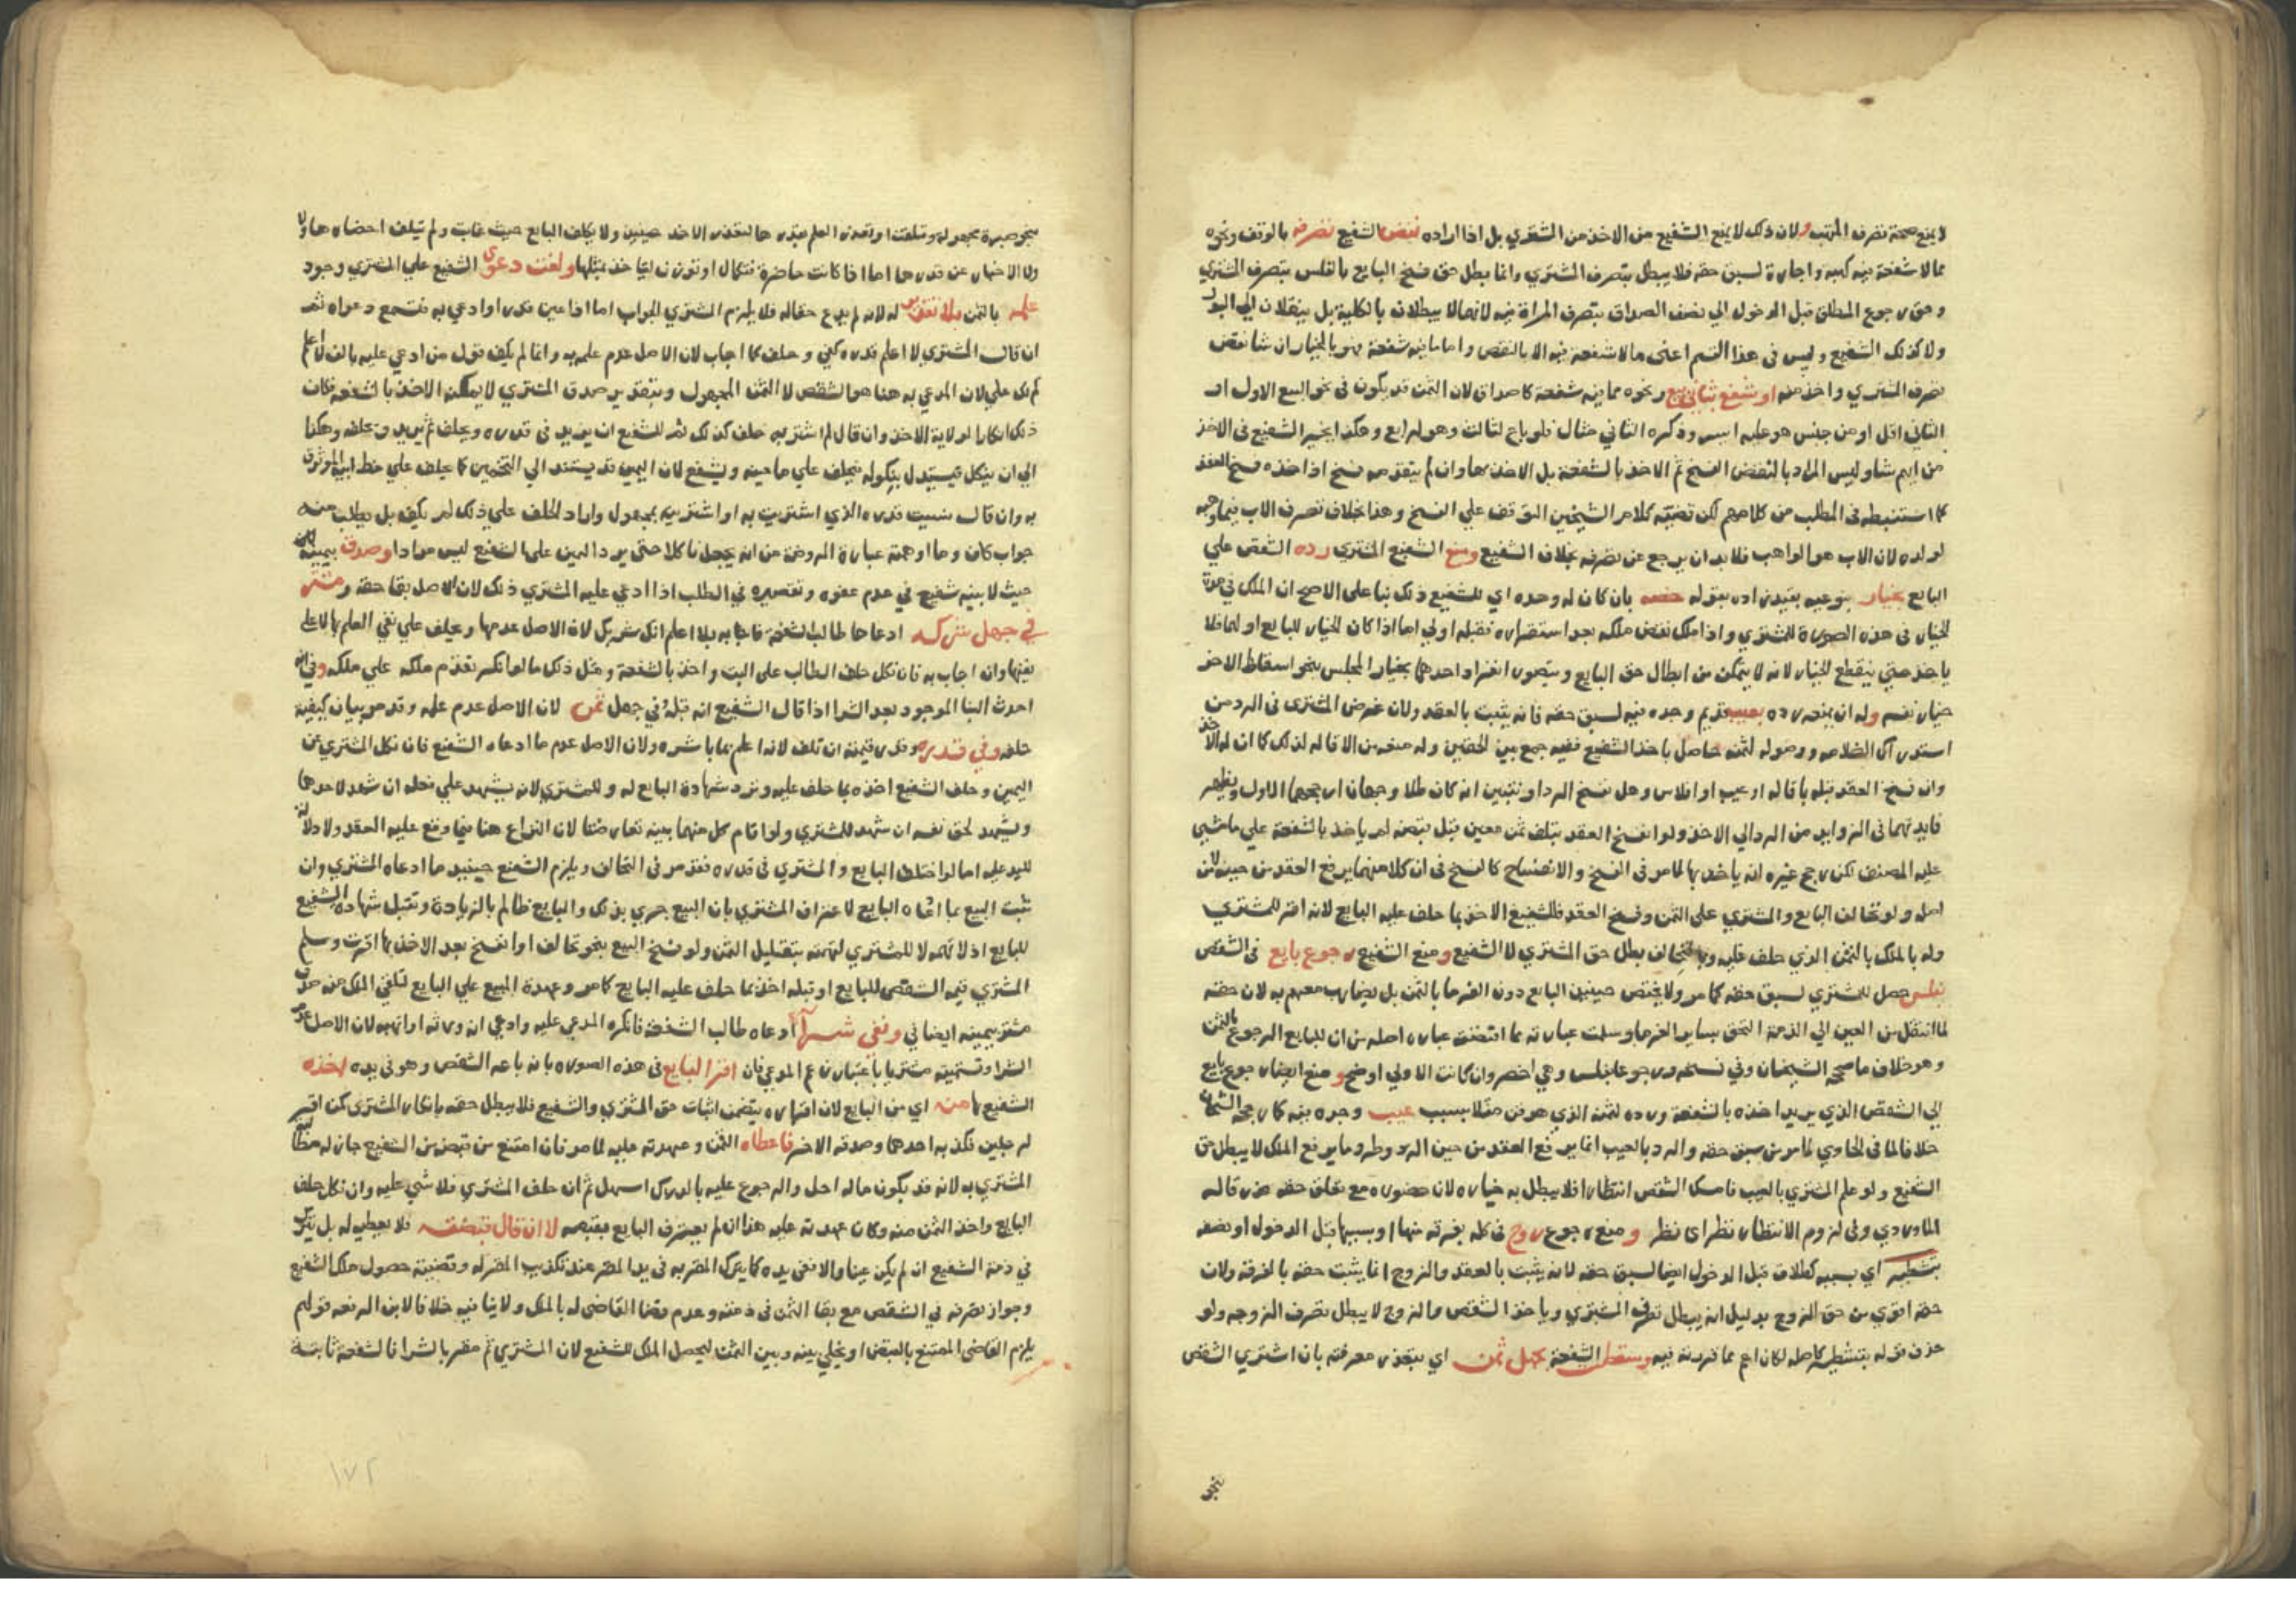 لا يمنع صحة تصرف المترتب ولان ذلك لا يمنع الشفيع من الاخذ من المشتري بل اذا اراده نقض الشفيع تصرفه بالوقف ونحوه
مما لا شفعة فيه كهبه واجارة لسبق حقه فلا يبطل بتصرف المشتري وانما بطل حق فسخ البايع بالفلس بتصرف المشتري
وحق رجوع المطلق قبل الدخول الي نصف الصداق بتصرف المراة فيه لانهما لا يبطلان بالكلية بل ينتقلان الي البدل
ولا كذلك الشفيع وليس في هذا القسم اعني ما لا شفعة فيه الا بالنقض واما ما فيه شفعة فهو بالخيار ان شا نقض
تصرف المشتري واخذ منه او شفع بثاني بيع ونحوه مما فيه شفعة كاصداق لان الثمن قد يكون في نحو البيع الاول او
الثاني اقل او من جنس هو عليه ايسر وذكره الثاني مثال فلو باع لثالث وهو لرابع وهكذا يخير الشفيع في الاخذ
من ايهم شا وليس المراد بالنقض الفسخ ثم الاخذ بالشفعة بل الاخذ بها وان لم يتقدمه فسخ اذا اخذه فسخ العقد
كما استنبطه في المطلب من كلامهم لكن قضية كلام الشيخين التوقف علي الفسخ وهذا بخلاف تصرف الاب فيما وهبه
لولده لان الاب هو الواهب فلا بد ان يرجع عن تصرفه بخلاف الشفيع ومنع الشفيع المشتري رده الشقص علي
البايع بخيار بنوعيه بقيد زاده بقوله خصه بان كان له وحده اي للشفيع ذلك بنا علي الاصح ان الملك في مدة
الخيار في هذه الصورة للمشتري واذا ملك نقض ملكه بعد استقراره فقبله اولي اما اذا كان الخيار للبايع او لهما فلا
ياخذ حتي ينقطع الخيار لانه لا يتمكن من ابطال حق البايع ويتصور انفراد احدهما بخيار المجلس بنحو اسقاط الاخر
خيار نفسه وله ان يمنعه رده بعيب قديم وجده فيه لسبق حقه فانه يثبت بالعقد ولان غرض المشتري في الرد من
استدراك الظلامه ووصوله لثمنه حاصل باخذ الشفيع ففيه جمع بين الحقين وله منعه من الاقاله لذلك كما ان له الاخذ
وان فسخ العقد قبله باقاله او عيب او افلاس وهل نفسخ الرد او نتبين انه كان باطلا وجهان ارجحهما الاول ويظهر
فايدتهما في الزوايد من الرد الي الاخذ ولو انفسخ العقد بتلف ثمن معين قبل قبضه لم ياخذ بالشفعة علي ما مشي
عليه المصنف لكن رجح غيره انه ياخذ بها لما مر في الفسخ والانفساخ كالفسخ في ان كلا منهما يرفع العقد من حينه لا من
اصله ولو تحالف البايع والمشتري علي الثمن وفسخ العقد فللشفيع الاخذ بما حلف عليه البايع لانه اقر للمشتري
وله بالملك بالثمن الذي حلف عليه وبالتحالف بطل حق المشتري لا الشفيع ومنع الشفيع رجوع بايع في الشقص
بفلس حصل للمشتري لسبق حقه كما مر ولا يختص حينئذ البايع دون الغرما بالثمن بل يضارب معهم به لان حقه
لما انتقل من العين الي الذمة التحق بساير الغرما وسلمت عبارته عما اقتضته عباره اصله من ان للبايع الرجوع بالثمن
وهو خلاف ما صححه الشيخان وفي نسخه ورجوعا بفلس وهي اخصر وان كانت الاولي اوضح ومنع ايضا رجوع بايع
الي الشقص الذي يريد اخذه بالشفعة ورده لثمنه الذي هو عرض مثلا بسبب عيب وجده فيه كما رجحه الشيخان
خلافا لما في الحاوي لما مر من سبق حقه والرد بالعيب انما يرفع العقد من حين الرد وطرو ما يرفع الملك لا يبطل حق
الشفيع ولو علم المشتري بالعيب فامسك الشقص انتظارا فلا يبطل به خياره لان حضوره مع تعلق حقه عذر قاله
الماوردي وفي لزوم الانتظار نظر اي نظر ومنع رجوع زوج في كله بفرقه منها او بسببها قبل الدخول او نصفه
بتشطير اي بسببه كطلاق قبل الدخول ايضا لسبق حقه لانه يثبت بالعقد والزوج انما يثبت حقه بالفرقه ولان
حقه اقوي من حق الزوج بدليل انه يبطل تصرف المشتري وياخذ الشقص والزوج لا يبطل تصرف الزوجه ولو
حذف قوله بتشطير كاصله لكان اعم مما قررته فيه وسقط الشفعة بجهل ثمن اي بتعذر معرفته بان اشتري الشقص
بنحو
بنحو صبرة مجهولة وتلفت او تعذر العلم بقدرها لتعذر الاخذ حينئذ ولا يكلف البايع حيث غابت ولم تتلف احضارها ولا
ولا الاخبار عن قدرها اما اذا كانت حاضرة فتكال او توزن ليأخذ بمثلها ولغت دعوي الشفيع علي المشتري وجود
علمه بالثمن بلا تقدير له لانه لم يدع حقا له فلا يلزم المشتري الجواب اما اذا عين قدرا وادعي به فتسمع دعواه ثم
ان قال المشتري لا اعلم قدره كفي وحلف كما اجاب لان الاصل عدم علمه به وانما لم يكف قول من ادعي عليه بالف لا اعلم
كم لك علي لان المدعي به هنا هو الشقص لا الثمن المجهول وبتقدير صدق المشتري لا يمكنه الاخذ بالشفعة فكان
ذلك انكارا لولاية الاخذ وان قال لم اشتر به حلف كذلك ثم للشفيع ان يزيد في قدره ويحلف ثم يزيد ويحلف وهكذا
الي ان ينكل فيستدل بنكوله فيحلف علي ما عينه ويشفع لان اليمين قد يستند الي التخمين كما يحلف علي خط ابيه الموثوق
به وان قال نسيت قدره الذي اشتريت به او اشتريته بمجهول واراد الحلف علي ذلك لم يكف بل يطلب منه
جواب كاف وما اوهمته عبارة الروضة من انه يجعل ناكلا حتي يرد اليمين علي الشفيع ليس مرادا وصدق بيمينه
حيث لا بينه شفيع في عدم عفوه وتقصيره في الطلب اذا ادعي عليه المشتري ذلك لان الاصل بقا حقه ومشتر
في جهل شركه ادعاها طالب الشفعة فاجابه بلا اعلم انك شريك لان الاصل عدمها ويحلف علي نفي العلم بها لا علي
نفيها وان اجاب به فان نكل حلف الطالب علي البت واخذ بالشفعة ومثل ذلك ما لو انكر تقدم ملكه علي ملكه وفي انه
احدث البنا الموجود بعد الشرا اذا قال الشفيع انه قبله وفي جهل ثمن لان الاصل عدم علمه وقد مر بيان كيفية
حلفه وفي قدره وقدر قيمته ان تلف لانه اعلم بما باشره ولان الاصل عدم ما ادعاه الشفيع فان نكل المشتري عن
اليمين وحلف الشفيع اخذه بما حلف عليه وترد شهادة البايع له وللمشتري لانه يشهد علي فعله ان شهد لاحدهما
ويشهد لحق نفسه ان شهد للمشتري ولو اقام كل منهما بينه تعارضتا لان النزاع هنا فيما وقع عليه العقد ولا دلالة
لليد عليه اما لو اختلف البايع والمشتري في قدره فقد مر في التحالف ويلزم الشفيع حينئذ ما ادعاه المشتري وان
ثبت البيع بما ادعاه البايع لاعتراف المشتري بان البيع جري بذلك والبايع ظالم بالزيادة وتقبل شهادة الشفيع
للبايع اذ لا تهمه لا للمشتري لتهمته بتقليل الثمن ولو فسخ البيع بنحو تحالف او انفسخ بعد الاخذ بها اقرت وسلم
المشتري قيمه الشقص للبايع او قبله اخذ بما حلف عليه البايع كما مر وعهدة المبيع علي البايع لتلقي الملك منه
مشتر بيمينه ايضا في ونفي شرا ادعاه طالب الشفعة فانكره المدعي عليه وادعي انه ورثه او اتهبه لان الاصل عدم
الشرا وتسميته مشتريا باعتبار زعم المدعي فان اقر البايع في هذه الصوره بانه باعه الشقص وهو في يده اخذه
الشفيع منه اي من البايع لان اقراره يتضمن اثبات حق المشتري والشفيع فلا يبطل حقه بانكار المشتري كمن اقر
لرجلين فكذبه احدهما وصدقه الاخر فاعطاه الثمن وعهدته عليه لما مر فان امتنع من قبضه من الشفيع جاز له
المشتري به لانه قد يكون ماله احل والرجوع عليه بالدرك اسهل ثم ان حلف المشتري فلا شي عليه وان نكل حلف
البايع واخذ الثمن منه وكان عهدته عليه هذا ان لم يعترف البايع بقبضه لا ان قال قبضته فلا يعطيه له بل يترك
في ذمة الشفيع ان لم يكن عينا والا ففي يده كما يترك المقر به في يد المقر عند تكذيب المقر له وقضيته حصول ملك الشفيع
وجواز تصرفه في الشقص مع بقا الثمن في ذمته وعدم قضا القاضي له بالملك ولا ينافيه خلافا لابن الرفعه قولهم
يلزم القاضي الممتنع بالقبض او يخلي بينه وبين الثمن ليحصل الملك للشفيع لان المشتري ثم مقر بالشرا فالشفعة ثابتة
١٧٢